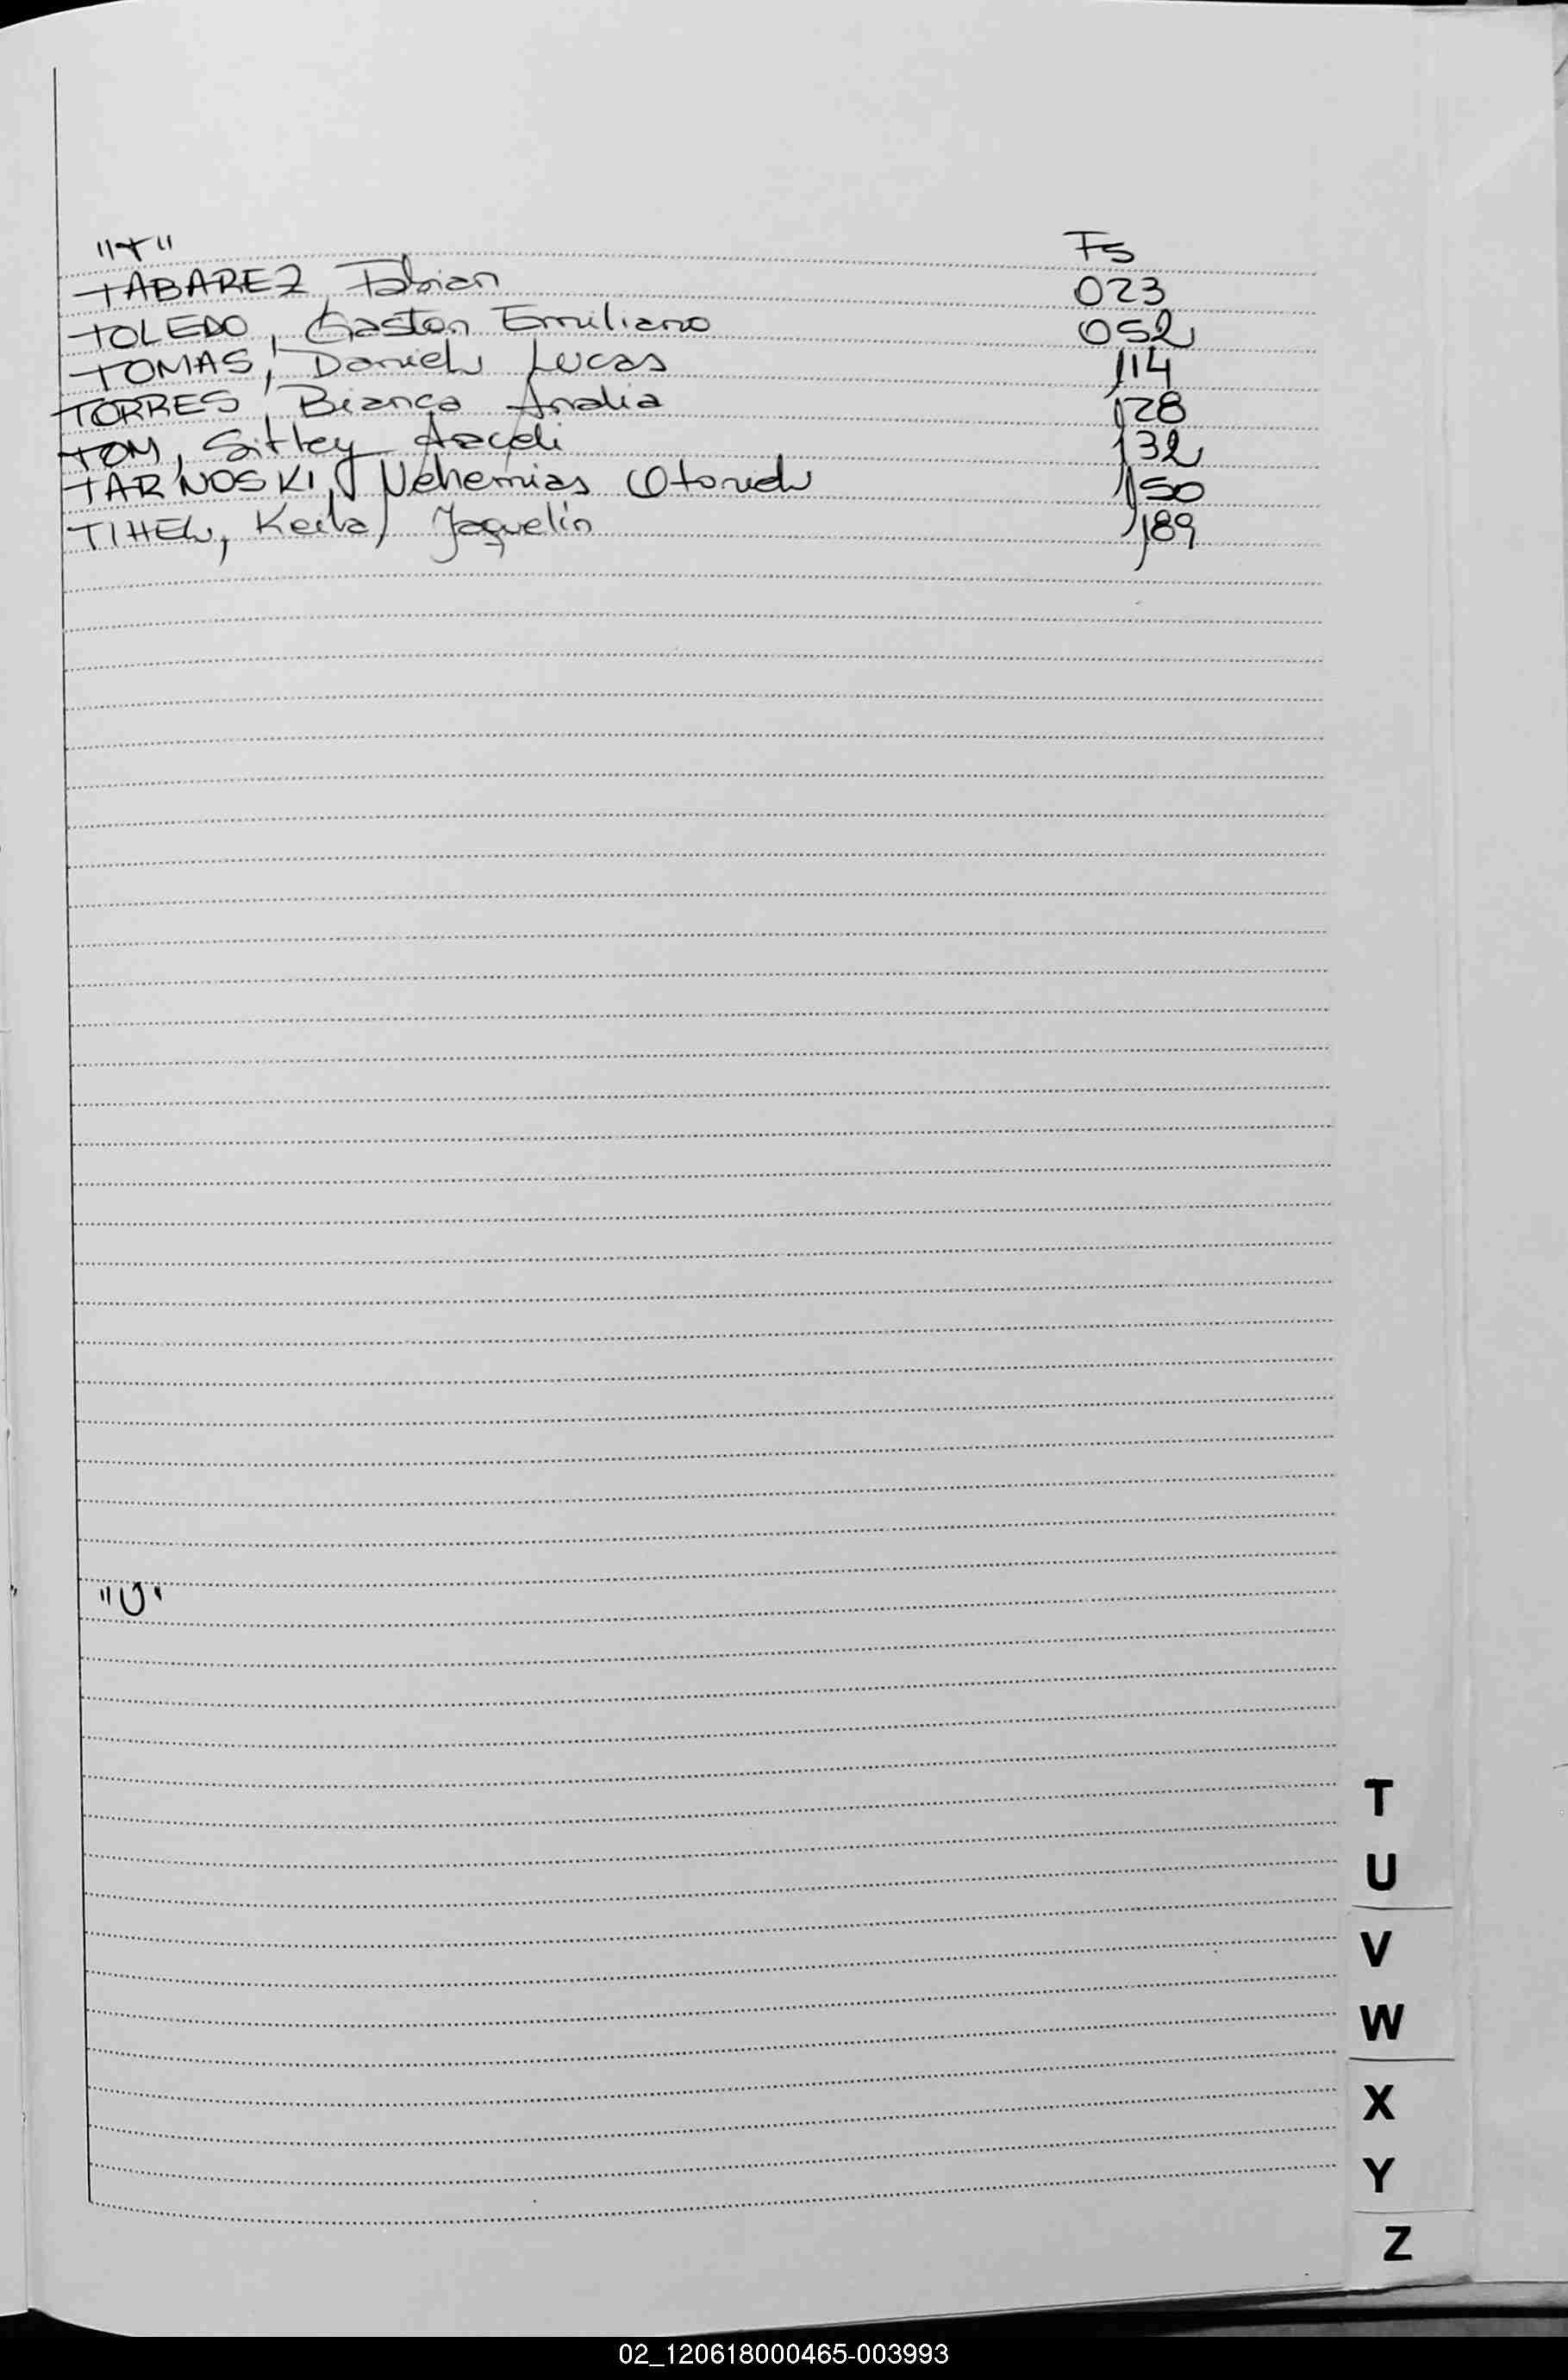 "T" Fs
TABAREZ Fabian 023
TOLEDO, Gaston Emiliano 052
TOMAS, Daniel Lucas 114
TORRES, Bianca Analia 128
TOM, Sitley Araceli 132
TARNOSKI, Nehemias Otoniel 150
TIHEL, Keila, Jaquelin 189
"U"
T
U
V
W
X
Y
Z
02_120618000465-003993